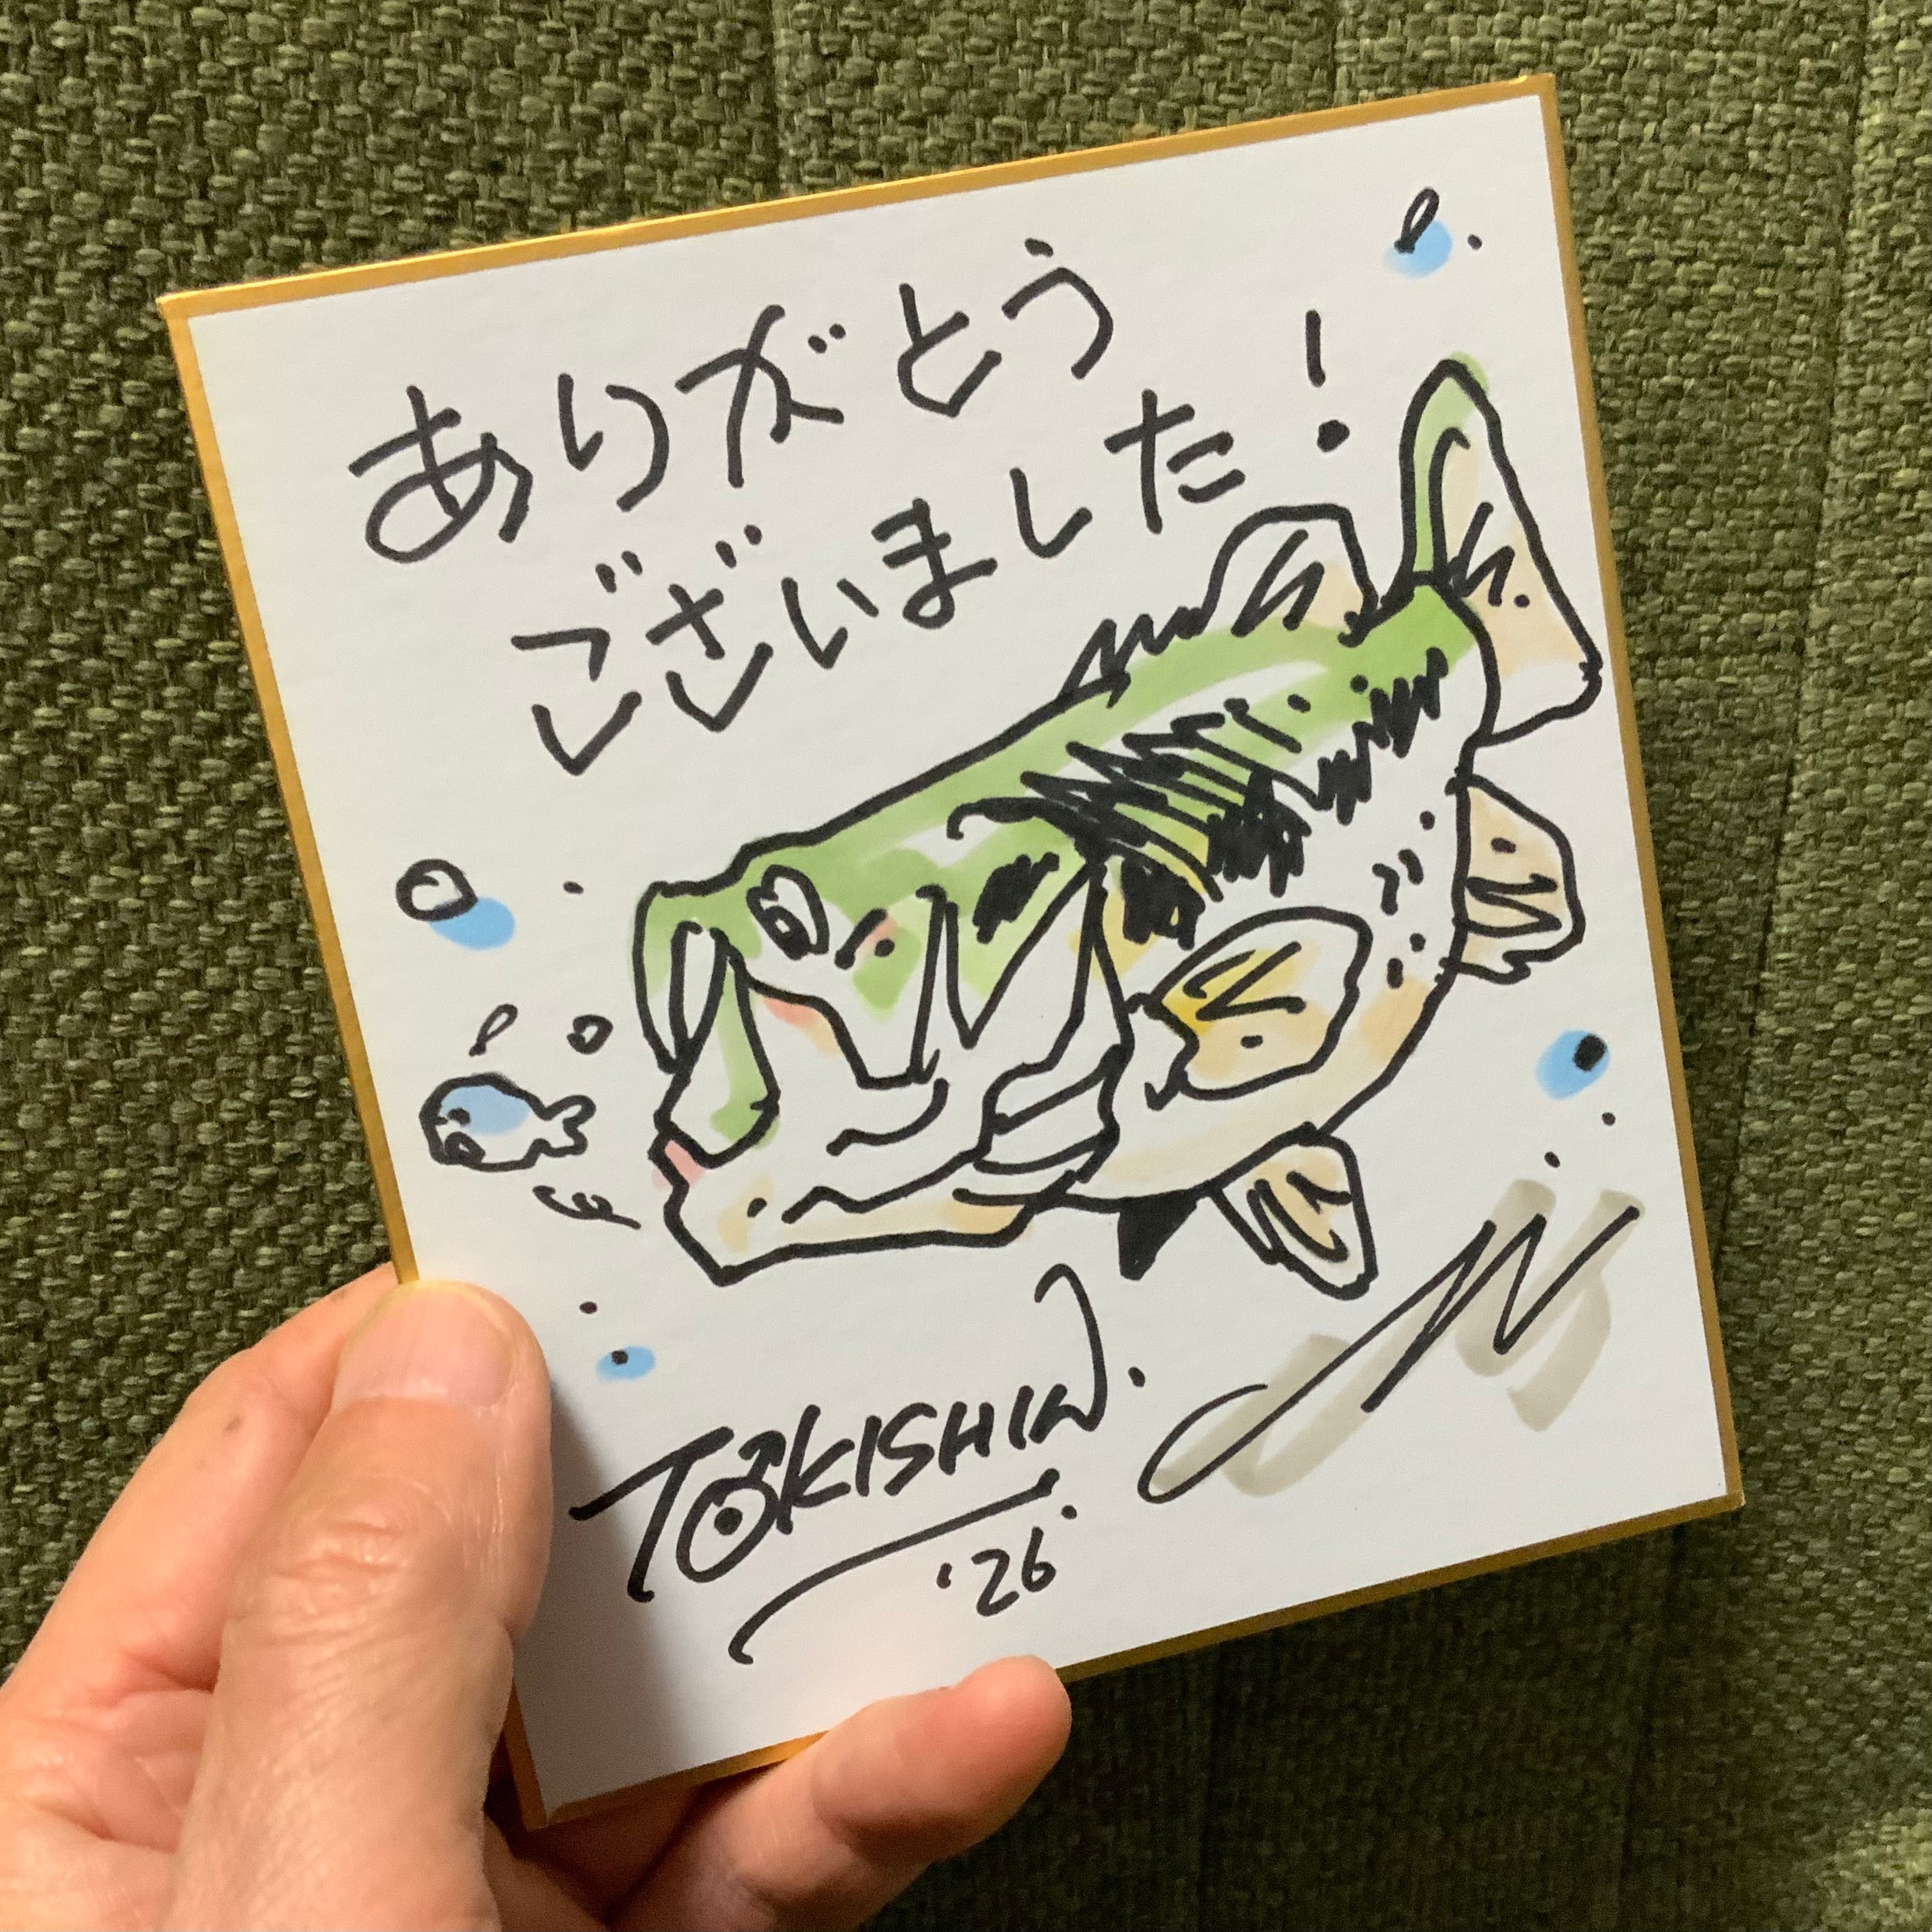 ありがとう
ございました!
TOKISHIN.
'26.